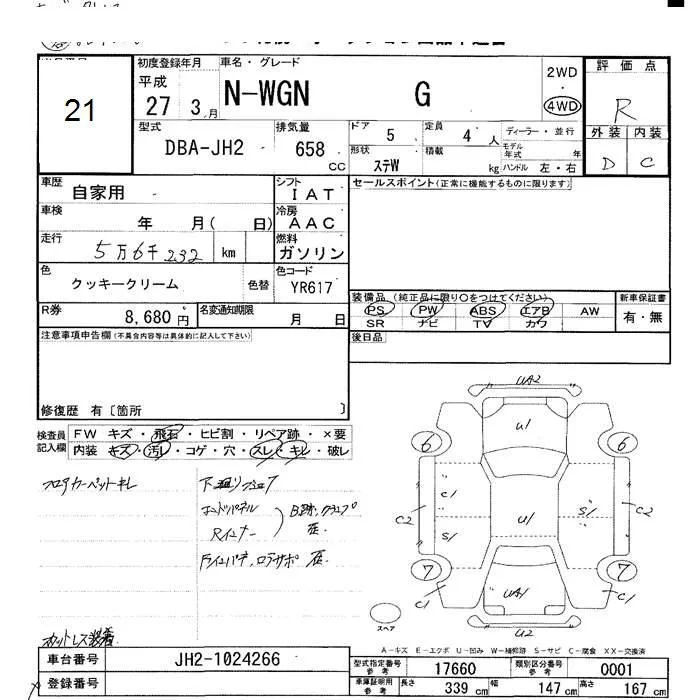 21
初度登録年月
平成
27 3 月
車名・グレード
N-WGN G
2WD
・
4WD
評価点
R
外装 内装
D C
型式
DBA-JH2
排気量
658
CC
ドア
5
定員
4 人
形状
ステW
積載
kg
ディーラー・並行
モデル年式 年
ハンドル 左・右
車歴
自家用
シフト
IAT
車検
年 月( 日)
冷房
AAC
走行
5万6千232 km
燃料
ガソリン
色
クッキークリーム
色替
色コード
YR617
R券
8,680 円
名変通知期限
月 日
セールスポイント(正常に機能するものに限ります)
装備品 (純正品に限り○をつけてください)
PS PW ABS エアB AW
SR ナビ TV カワ
新車保証書
有・無
後日品
注意事項申告欄(不具合内容等は具体的に記入して下さい)
修復歴 有〔箇所 〕
検査員
記入欄
FW キズ・飛石・ヒビ割・リペア跡・×要
内装 キズ・汚れ・コゲ・穴・スレ・キレ・破レ
フロアカーペットキレ
UA2
U1
6 6
C1
C2
S1
U1
S1
C2
7 7
C1
UA1
C1
U2
スペア
A-キズ E-エクボ U-凹み W-補修跡 S-サビ C-腐食 XX-交換済
車台番号
JH2-1024266
登録番号
型式指定番号
参考
17660
類別区分番号
参考
0001
車庫証明用
参考
長さ 339 cm 幅 147 cm 高さ 167 cm